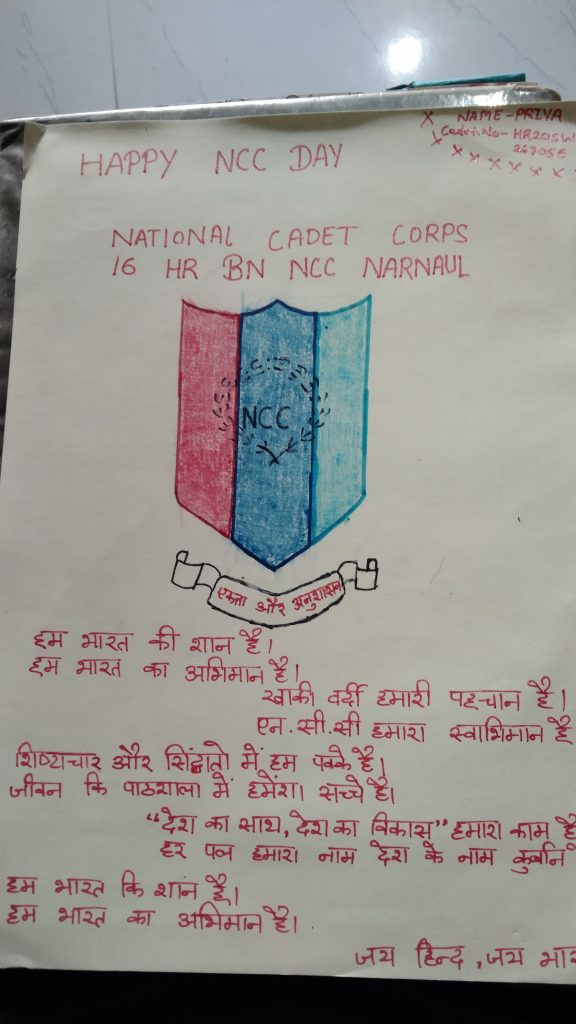 NAME-PRIYA
Cadet.No- HR20SW
HAPPY NCC DAY
NATIONAL CADET CORPS
16 HR BN NCC NARNAUL
NCC
एकता और अनुशासन
हम भारत की शान है।
हम भारत का अभिमान है।
खाकी वर्दी हमारी पहचान है।
एन.सी.सी हमारा स्वाभिमान है
शिष्यचार और सिंद्वातो में हम पक्के है।
जीवन कि पाठशाला में हमेंशा सच्चे है।
"देश का साथ, देश का विकास" हमारा काम है
हर पल हमारा नाम देश के नाम कुर्बान
हम भारत कि शान है।
हम भारत का अभिमान है।
जय हिन्द, जय भार